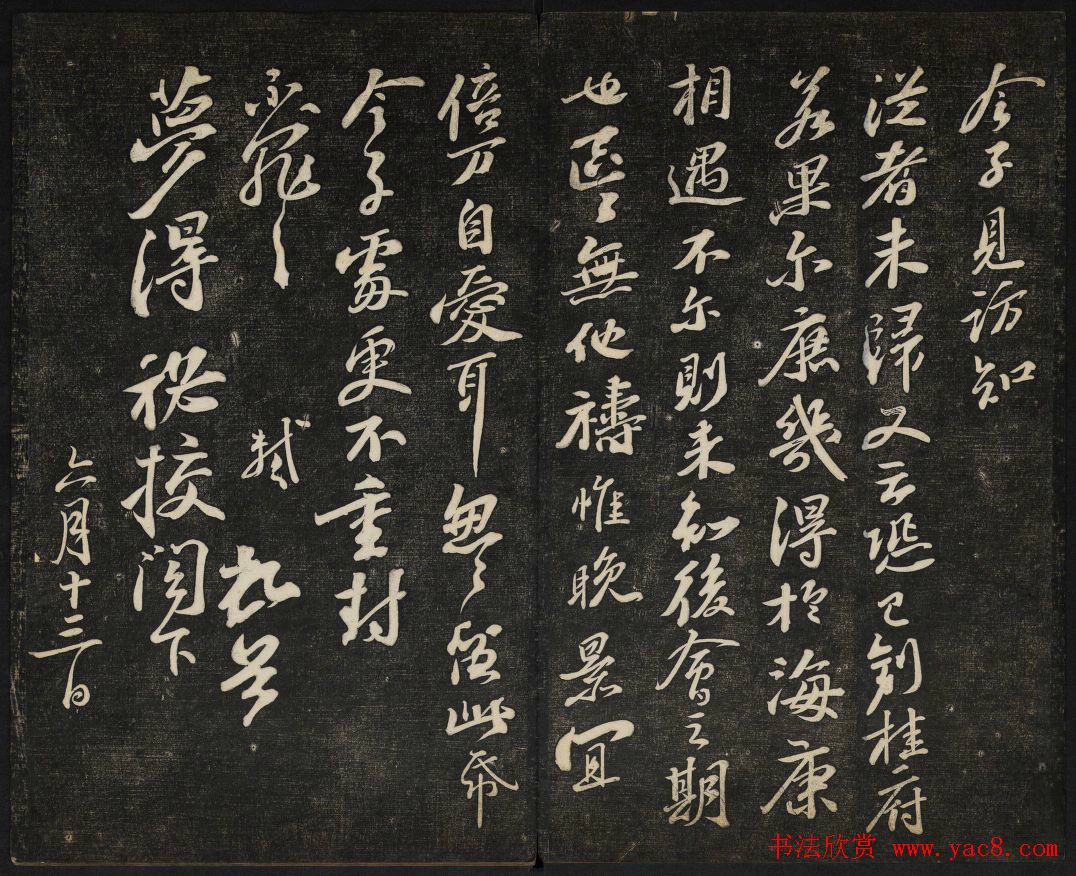 令子見訪知
從者未歸又云恐已到桂府
若果尔庶幾得於海康
相遇不尔則未知後會之期
也區〻無他禱惟晚景宜
倍万自愛耳怱〻留此帋
令子處更不重封
不罪〻 軾 頓首
夢得 秘校閣下
六月十三日
书法欣赏 www.yac8.com